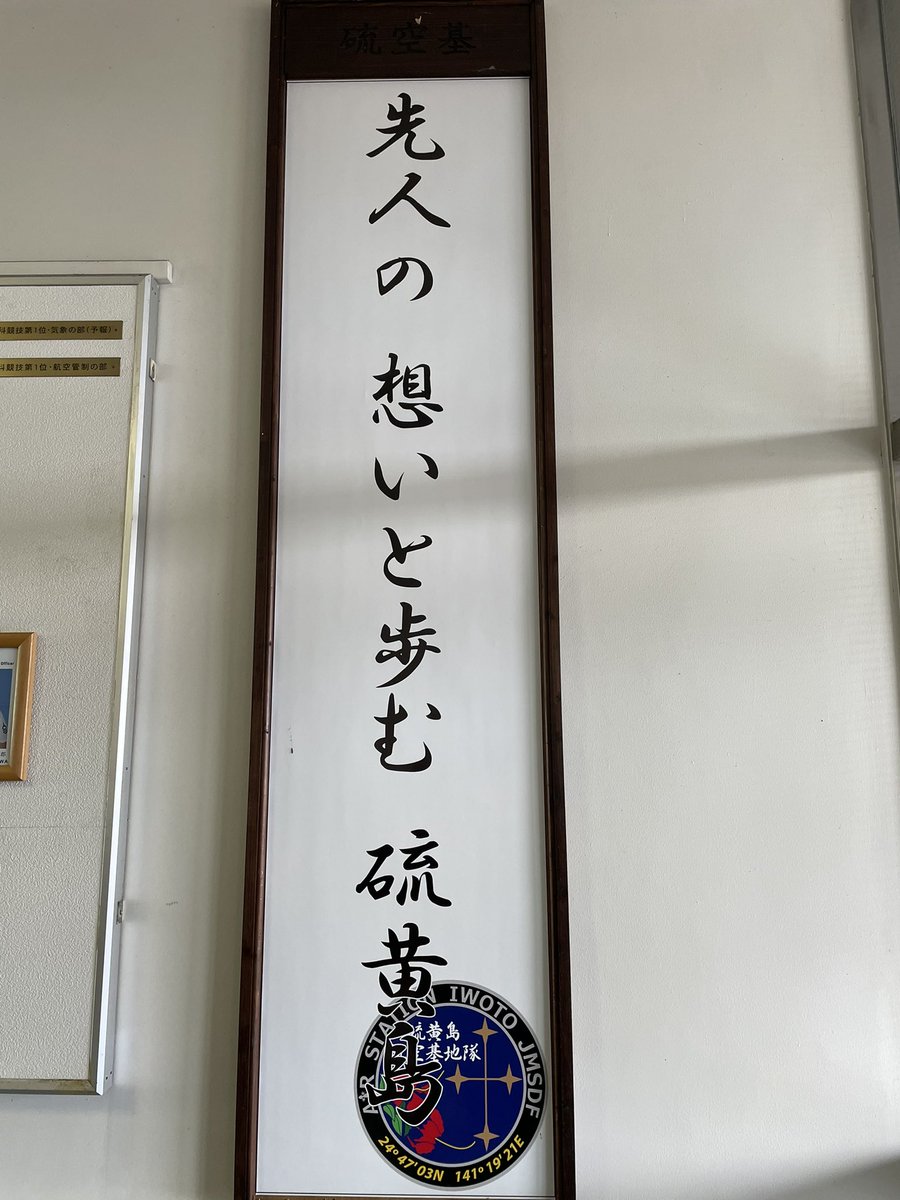 硫空基
先人の 想いと歩む 硫黄島
AIR STATION IWOTO JMSDF
硫黄島
空基地隊
24°47'03N 141°19'21E
科競技第1位・気象の部(予報)
科競技第1位・航空管制の部
Officer
郎
WA